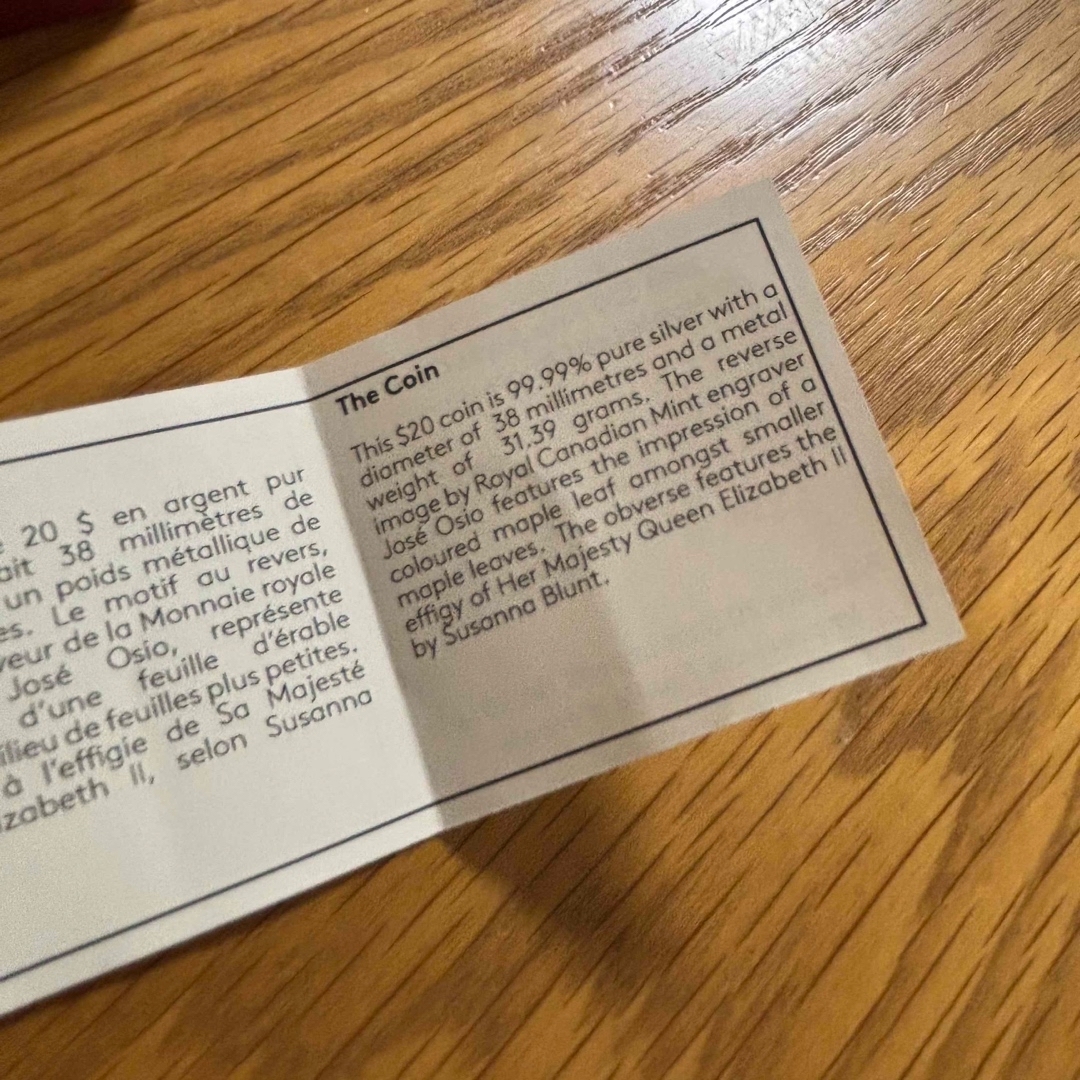 20 $ en argent pur
38 millimètres de
un poids métallique de
Le motif au revers,
de la Monnaie royale
José Osio, représente
d'une feuille d'érable
de feuilles plus petites.
à l'effigie de Sa Majesté
II, selon Susanna
The Coin
This $20 coin is 99.99% pure silver with a
diameter of 38 millimetres and a metal
weight of 31.39 grams. The reverse
image by Royal Canadian Mint engraver
José Osio features the impression of a
coloured maple leaf amongst smaller
maple leaves. The obverse features the
effigy of Her Majesty Queen Elizabeth II
by Susanna Blunt.